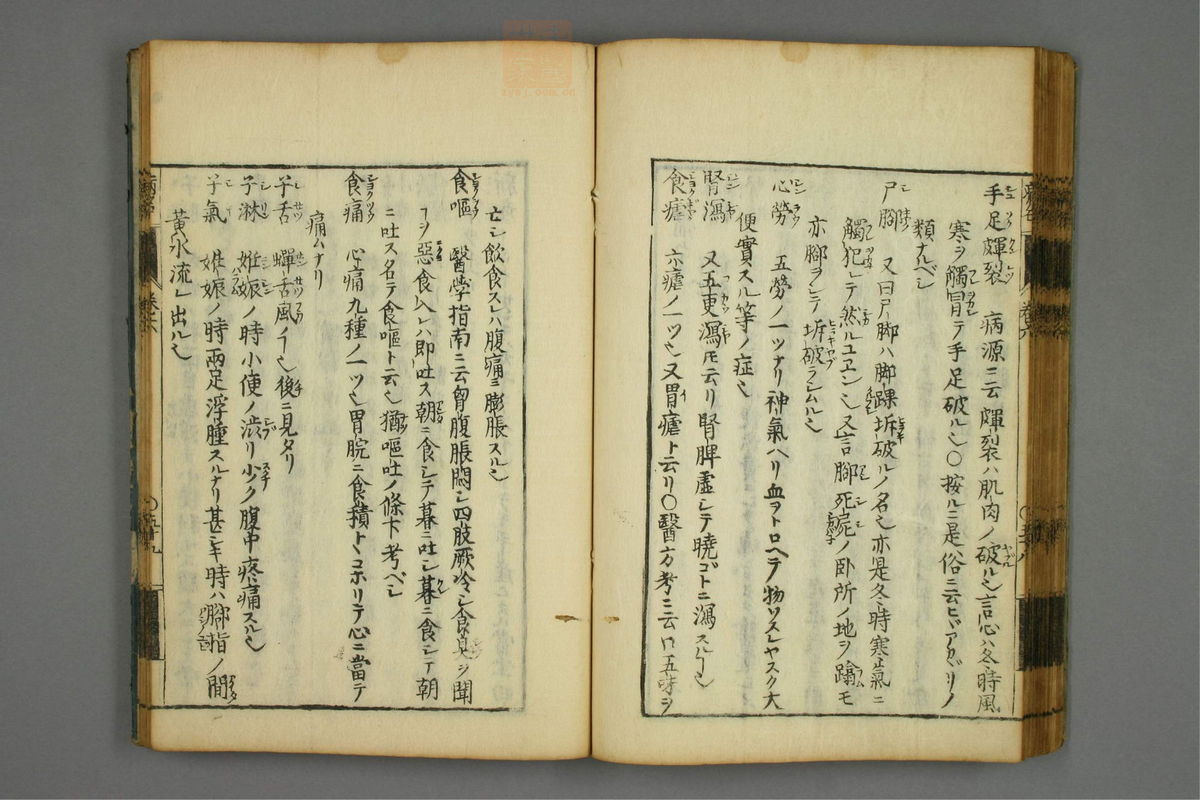 手足皸裂 病源ニ云皸裂ハ肌肉ノ破ルヽ也言心ハ冬時風
寒ヲ觸冒テ手足破ル也〇按ルニ是俗ニ云ヒヾアカヾリノ
類ナルベシ
尸脚 又曰尸脚ハ脚踝坼破ルノ名也亦是冬時寒氣ニ
觸犯レテ然ルユヱン也又言脚死屍ノ卧所ノ地ヲ蹋モ
亦脚ヲシテ坼破ラシムル也
心勞 五勞ノ一ツナリ神氣ヘリ血ヲトロヘテ物ワスレヤスク大
便實スル等ノ症也
腎瀉 又五更瀉モ云リ腎脾虛シテ曉ゴトニ瀉スル也
食瘧 六瘧ノ一ツ也又胃瘧ト云リ〇醫方考ニ云口五味ヲ
亡シ飲食スレハ腹痛ミ膨脹スル也
食嘔 醫學指南ニ云胷腹脹悶シ四肢厥冷シ食臭ヲ聞
ヿヲ惡食入レハ即吐ス朝ニ食シテ暮ニ吐シ暮ニ食シテ朝
ニ吐ス名テ食嘔ト云也猶嘔吐ノ條下考ベシ
食痛 心痛九種ノ一ツ也胃脘ニ食積トヽコホリテ心ニ當テ
痛ムナリ
子舌 蟬舌風ノヿ也後ニ見タリ
子淋 姙娠ノ時小便ノ澁リ少ク腹中疼痛スル也
子氣 姙娠ノ時兩足浮腫スルナリ甚シキ時ハ脚指ノ間
黄水流レ出ル也